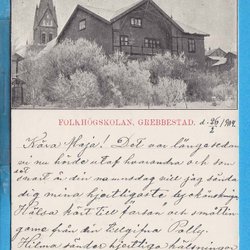 FOLKHÖGSKOLAN, GREBBESTAD. d. 26/2 1904.
Kära Maja! Det var länge sedan
vi nu hörde utaf hvarandra och som
det
snart är din namnsdag vill jag sända
dig mina hjertligaste lyckönskningar
Hälsa kärt till farsan och småttin
game från din Tally.
Hilma sänder hjertliga hälsningar